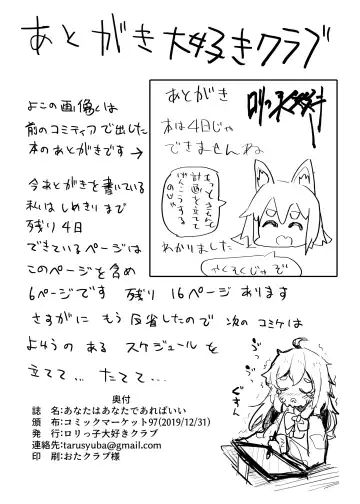 あとがき大好きクラブ
よこの画像くは
前のコミティアで出した
本のあとがきです→
あとがき
ロリっ子大好き
本は4日じゃ
できませんね
もっときちんと
計画を立てて
げんこうする
のじゃ
わかりました
やくそくじゃぞ
今あとがきを書いている
私はしめきりまで
残り4日
できているページは
このページを含め
6ページです 残り 16ページあります
さすがに もう 反省したので 次の コミケは
よゆうの ある スケジュールを
立てて… たてて…
ぐすん
奥付
誌 名:あなたはあなたであればいい
頒 布:コミックマーケット97(2019/12/31)
発 行:ロリっ子大好きクラブ
連絡先:tarusyuba@gmail.com
印 刷:おたクラブ様